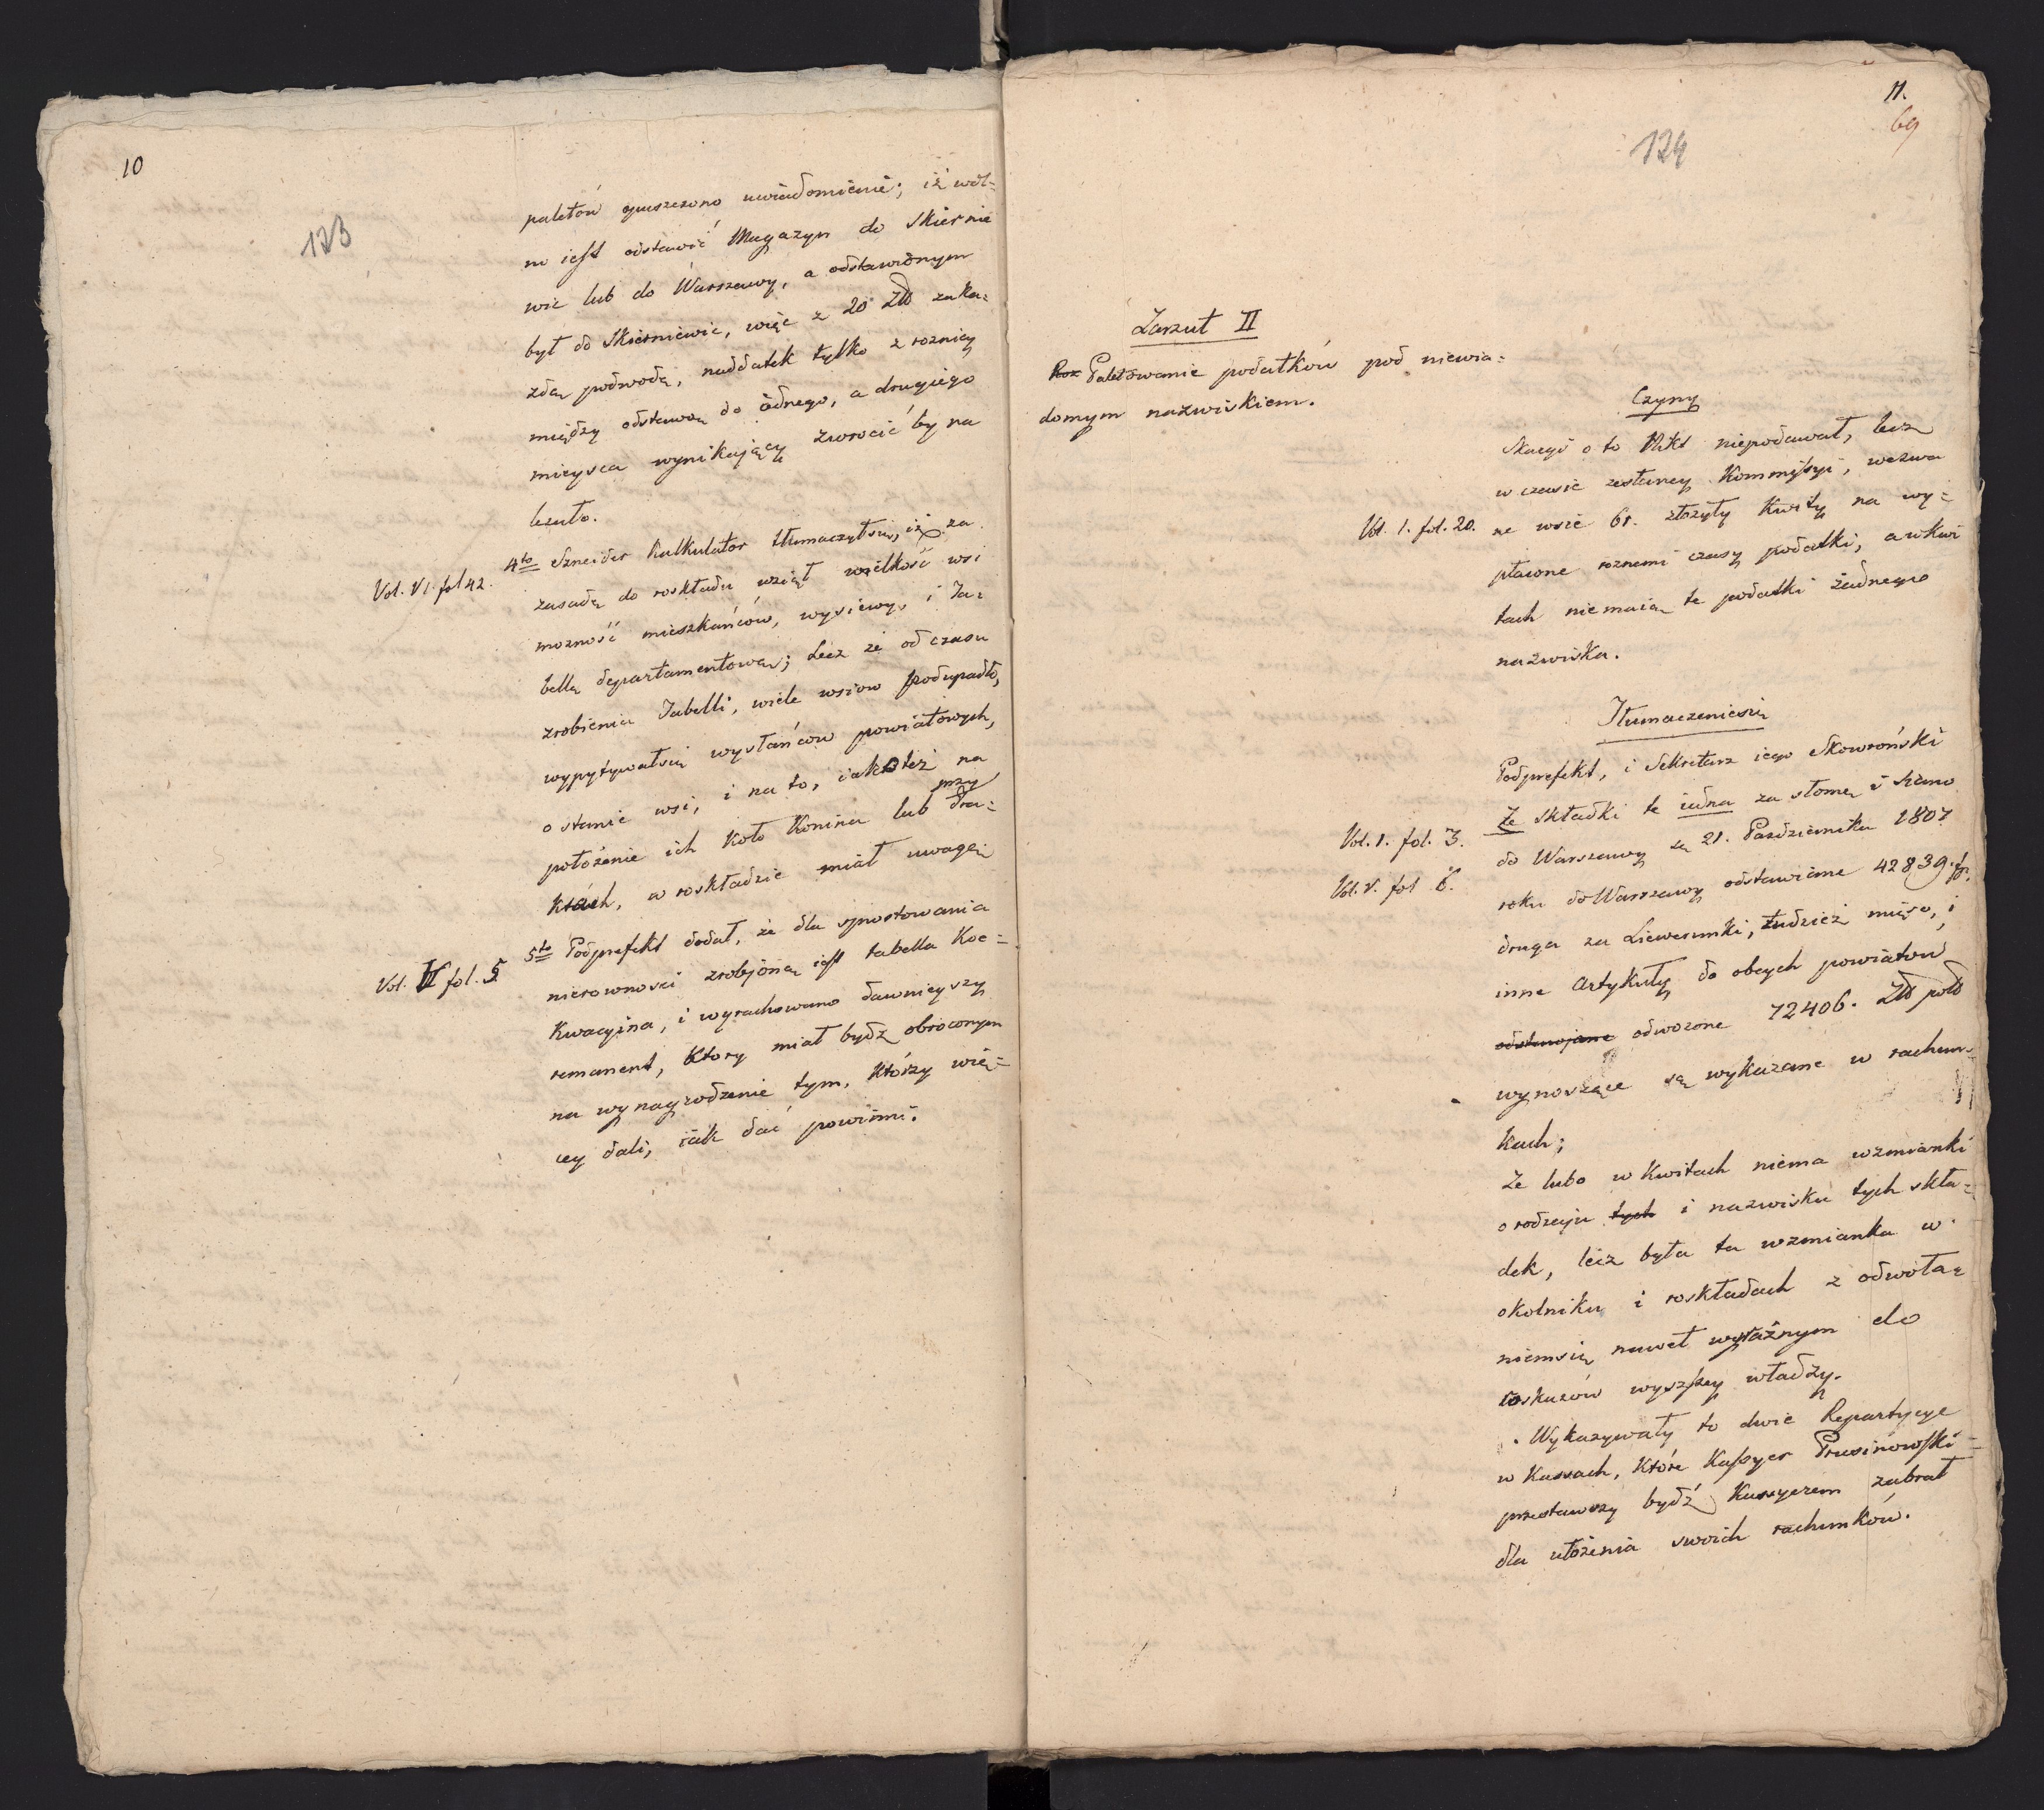 10
123
paletów opuszczono uwiadomienie; iż wol=
no iest odstawić Magazyn do Skiernie
wic lub do Warszawy, a odstawionym
był do Skierniewic, więc z 20 Złł za ka=
żdą podwodę, naddatek tylko z roznicy
między odstawą do iednego, a drugiego
mieysca wynikaiący zwrocić by na
leżało.
Vol. VI. fol 42.
4to Szneider Kalkulator tłumaczył się, iż za
zasadę do roskładu wziął wielkość wsi
możność mieszkańców, wysiewy, i Ta=
bellę departamentową; Lecz że od czasu
zrobienia Tabelli, wiele wsiow podupadło,
wypytywał się wysłańcow powiatowych,
o stanie wsi, i na to, iako też na
położenie ich koło Konina lub przy Tra=
ktach, w roskładzie miał uwagę.
Vol. V fol. 5.
5to Podprefekt dodał, że dla sprostowania
nierownosci zrobioną iest tabella Roe=
kwacyina, i wyrachowano dawnieyszy
remanent, ktory miał bydź obroconym
na wynagrodzenie tym, którzy wię=
cey dali, iak dać powinni.
11.
69
124
Zarzut II
Roz Paletowanie podatków pod niewia=
domym nazwiskiem.
Czyny
Skargi o to Nikt niepodawał, lecz
w czasie zesłaney Kommissyi, wezwa
Vol. 1. fol. 20.
ne wsie 61. złożyły Kwity na wy=
płacone roznemi czasy podatki, a w kwi
tach nie maią te podatki żadnego
nazwiska.
Tłumaczenie się
Podprefekt, i Sekretarz iego Skowroński
Że Składki te iedna za słomę i siano
Vol. 1. fol. 3.
do Warszawy za 21. Pazdziernika 1807
Vol. V. fol 6.
roku do Warszawy odstawiane 42839. fp.
druga za Liwerunki, tudzież mięso, i
inne Artykuły do obcych powiatow
odstawiane odwozone 72406. Złł poł
wynoszące są wykazane w rachun=
kach;
Ze lubo w Kwitach niema wzmianki
o rodzaju tych i nazwisku tych skła=
dek, lecz była ta wzmianka w
okolniku i roskładach z odwoła=
niem się nawet wyraźnym do
roskazów wyższey władzy.
Wykazywały to dwie Repartycye
w Kassach, które Kassyer Prusinowski
przestawszy bydź Kassyerem zabrał
dla ułożenia swoich rachunków.